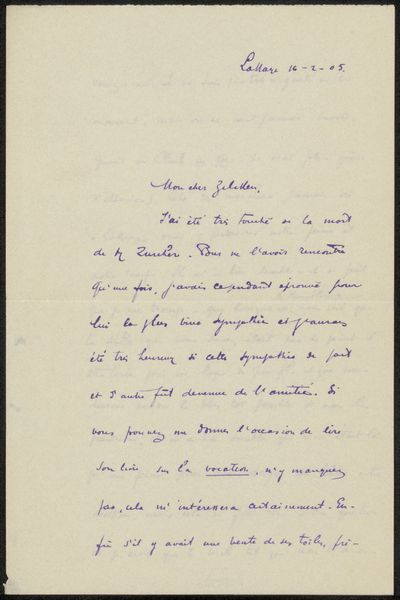 La Haye 16-2-05.
Mon cher Zilcken,
J'ai été très touché de la mort
de M Zürcher. Bien ne l'avoir rencontré
qu'une fois, j'avais cependant éprouvé pour
lui la plus vive sympathie et j'aurais
été très heureux si cette sympathie de part
et d'autre fut devenue de l'amitié. Si
vous pouvez me donner l'occasion de lire
son livre sur la vocation, n'y manquez
pas, cela m'intéressera certainement. En-
fin s'il y avait une vente de ses toiles, pré-